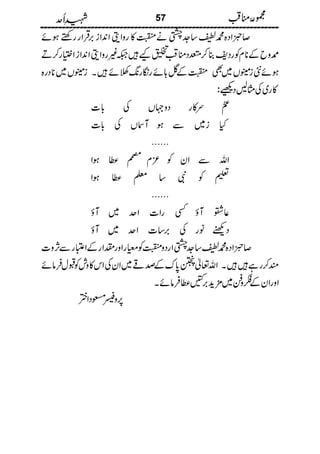 مجموعہ مناقب 57 شہیدِ اُحد
صاحبزادہ محمد لطیف ساجد چشتی نے منقبت کا روایتی انداز برقرار رکھتے ہوئے
ممدوح کے نام کو ردیف بنا کر متعدد مناقب تخلیق کیے ہیں جبکہ غیر روایتی انداز اختیار کرتے
ہوئے نئی زمینوں میں بھی منقبت کے گل ہائے رنگا رنگ کھلائے ہیں۔ زمینوں میں نادرہ
کاری کی مثالیں دیکھیے:
عمِّ سرکارِ دوجہاں کی بات
کیا زمیں سے ہو آسماں کی بات
......
اللہ سے ان کو عزمِ مصمم عطا ہوا
تعلیم کو نبی سا معلم عطا ہوا
......
عاشقو آؤ کسی رات احد میں آؤ
دیکھنے نور کی برسات احد میں آؤ
صاحبزادہ محمد لطیف ساجد چشتی اردو منقبت کو معیار اور مقدار کے اعتبار سے ثروت
مند کر رہے ہیں۔ اللہ تعالیٰ پنجتن پاک کے صدقے میں ان کی اس کاوش کو قبول فرمائے
اور ان کے فکر و فن میں مزید برکتیں عطا فرمائے۔
پروفیسر مسعود اختر